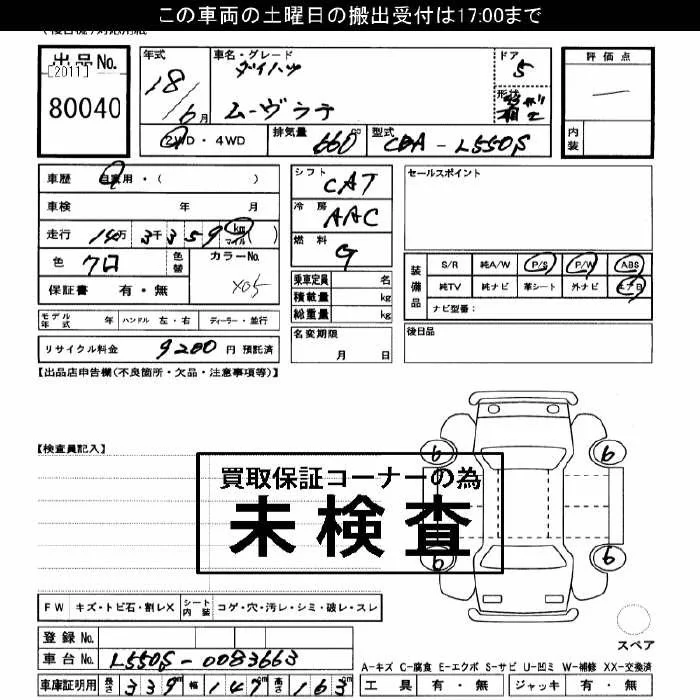 この車両の土曜日の搬出受付は17:00まで
出品No.
[2011]
80040
年式
18/6月
車名・グレード
ダイハツ
ムーヴラテ
ドア
5
形状
評価点
内装
2WD・4WD
排気量 660 cc
型式 CBA-L550S
車歴 自家用・( )
車検 年 月
走行 14万3千359 km マイル ( )
色 クロ 色替 カラーNo. X05
保証書 有・無
シフト CAT
冷房 AAC
燃料 G
乗車定員 名
積載量 kg
総重量 kg
セールスポイント
装備品
S/R 純A/W P/S P/W ABS
純TV 純ナビ 革シート 外ナビ エアB
ナビ型番:
モデル年式 年 ハンドル 左・右 ディーラー・並行
名変期限 月 日
後日品
リサイクル料金 9200 円 預託済
【出品店申告欄(不良箇所・欠品・注意事項等)】
【検査員記入】
6 6
買取保証コーナーの為
未検査
6 6
FW キズ・トビ石・割レX シート内装 コゲ・穴・汚レ・シミ・破レ・スレ
スペア
登録No.
車台No. L550S-0083663
A-キズ C-腐食 E-エクボ S-サビ U-凹ミ W-補修 XX-交換済
車庫証明用 長さ 339cm 幅 147cm 高さ 163cm
工具 有・無 ジャッキ 有・無